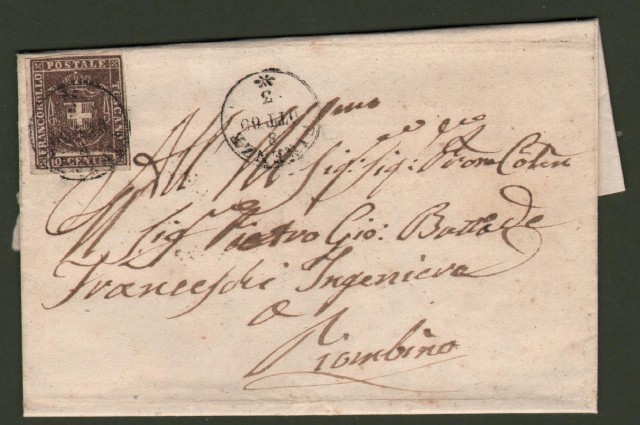 FRANCOBOLLO
POSTALE
TOSCANO
10 CENT
FIRENZE
3
OTT 60
All' Illmo
Sig: Sig: Pron Coln
Il Sigr Pietro Gio: Batta de
Franceschi Ingeniere
a
Piombino